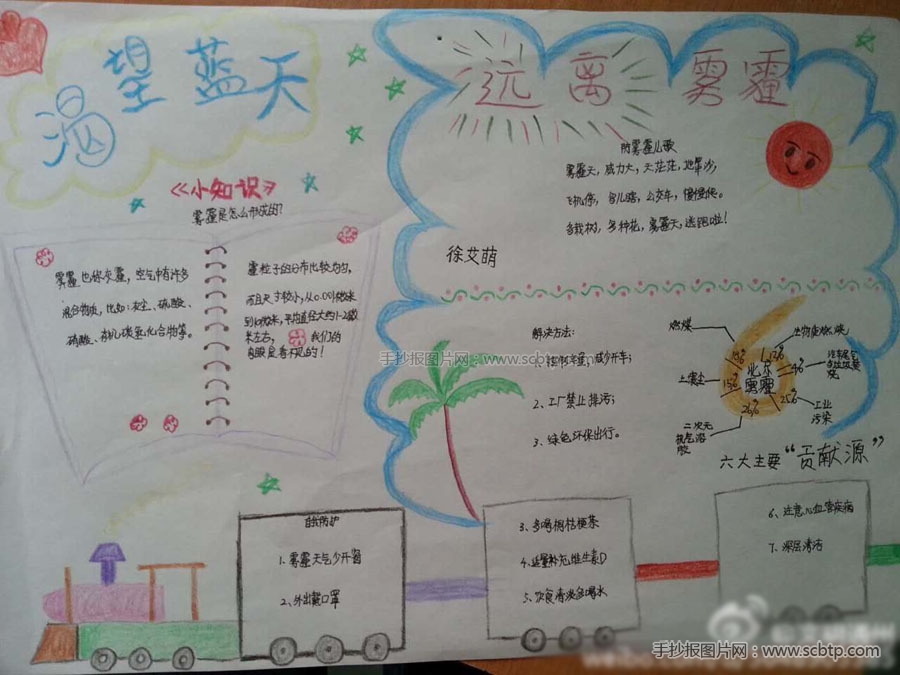 渴望蓝天
远离雾霾
《小知识》
雾霾是怎么形成的?
雾霾也称灰霾，空气中有许多
混合物质，比如:灰尘、硫酸、
硝酸、有机碳氢化合物等。
霾粒子的分布比较均匀，
而且尺寸较小，从0.001微米
到10微米，平均直径大约1-2微
米左右，我们的
肉眼是看不见的！
防雾霾儿歌
雾霾天，威力大，天茫茫，地
飞机停，鸟儿瞎，公交车，慢慢爬。
多栽树，多种花，雾霾天，逃跑啦！
徐艾萌
解决方法:
1、控制车量，减少开车；
2、工厂禁止排污；
3、绿色环保出行。
燃煤
生物质燃烧
土壤尘
汽车尾气
工业
污染
二次无
机气溶
胶
北京
雾霾
15%
26%
25%
4%
12%
六大主要“贡献源”
自我防护
1、雾霾天气少开窗
2、外出戴口罩
3、多喝桐桔梗茶
4、适量补充维生素D
5、饮食清淡多喝水
6、注意心血管疾病
7、深层清洁
手抄报图片网：www.scbtp.com
手抄报图片网：www.scbtp.com